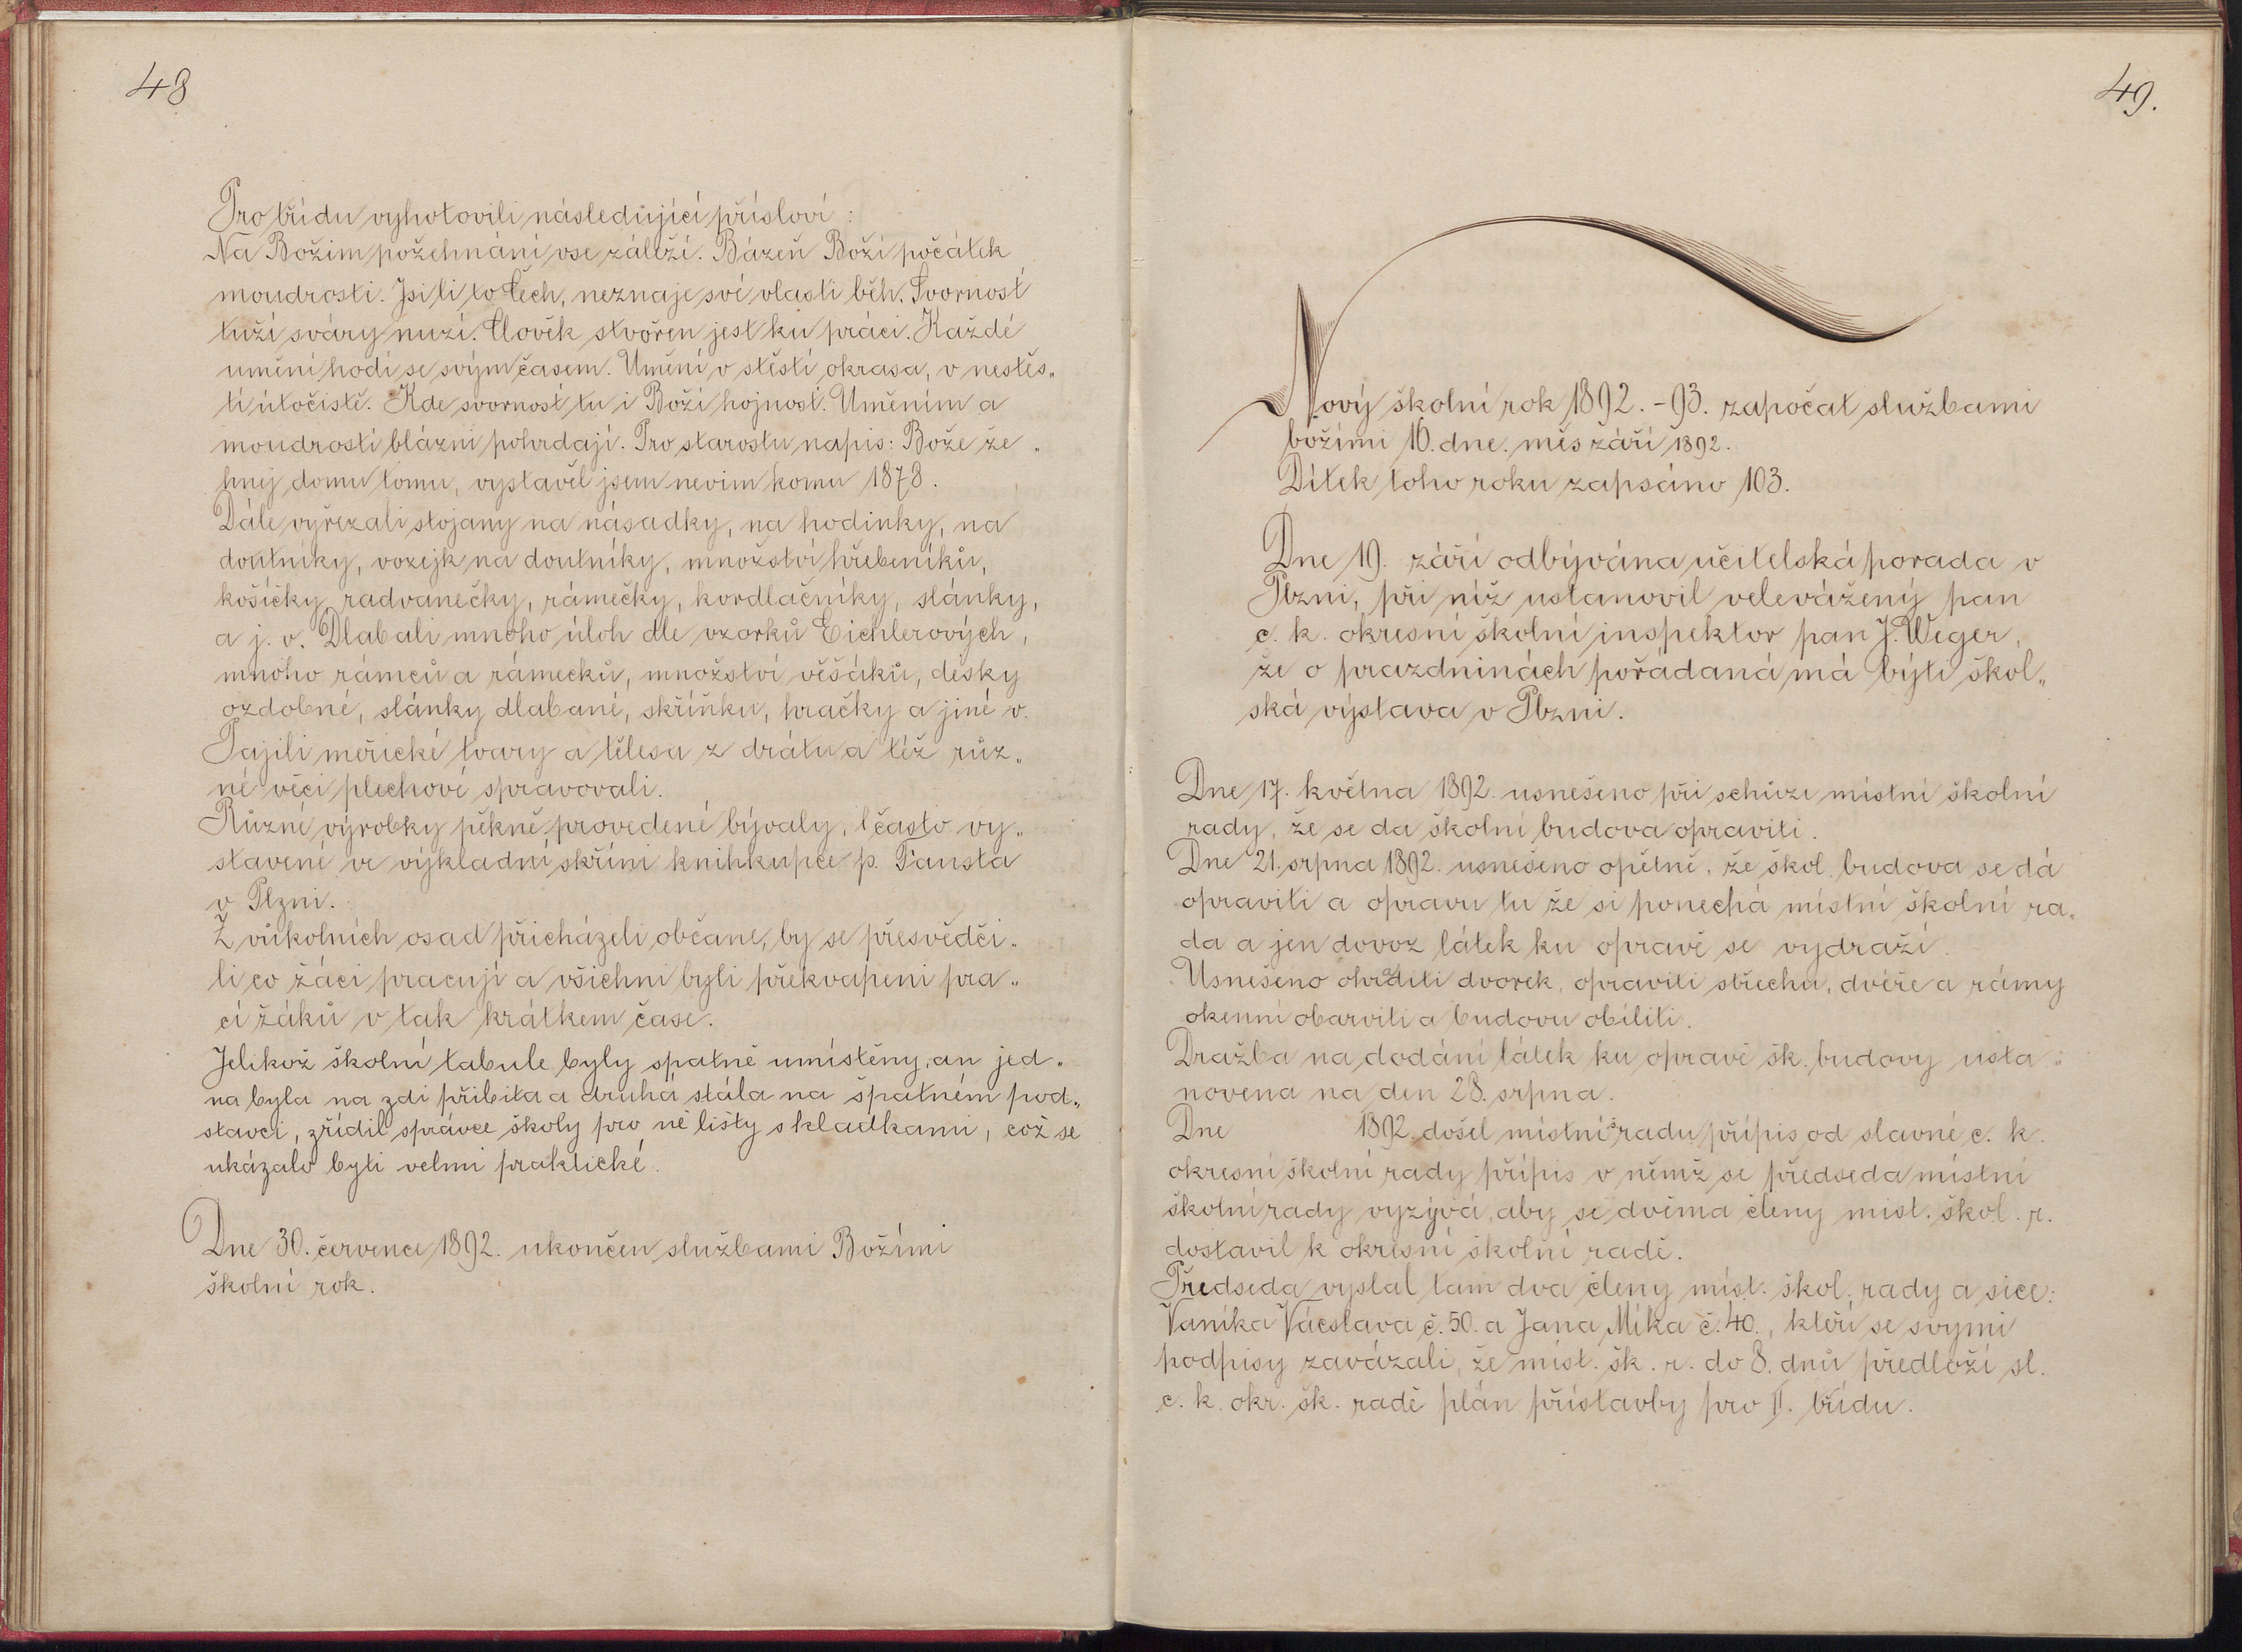 48
Pro třídu vyhotovili následující přísloví:
Na Božím požehnání vse záleží. Bázeň Boží počátek
moudrosti. Jsi li to Čech, neznaje své vlasti běh. Svornost
tuží sváry nuzí. Člověk stvořen jest ku práci. Každé
umění hodí se svým časem. Umění v stěstí okrasa, v nestěs„
tí útočistě. Kde svornost tu i Boží hojnost. Uměním a
moudrostí blázni pohrdají. Pro starostu napis: Bože že„
hnej domu tomu, vystavěl jsem nevim komu 1878.
Dále vyřezali stojany na násadky, na hodinky, na
doutníky, vozejk na doutníky, množství hřebeníků,
košíčky, radvanečky, rámečky, kordlačníky, slánky,
a j. v. Dlabali mnoho úloh dle vzorků Eichlerových,
mnoho rámců a rámečků, množství věšáků, desky
ozdobné, slánky dlabané, skříňku, hračky a jiné v.
Pajili měřické tvary a tělesa z drátu a též růz„
né věci plechové spravovali.
Různé výrobky pěkně provedené bývaly, často vy„
stavené ve výkladní skříni knihkupce p. Fausta
v Plzni.
Z vůkolních osad přicházeli občané, by se přesvědči„
li co žáci pracují a všichni byli překvapeni pra„
cí žáků v tak krátkem čase.
Jelikož školní tabule byly spatně umístěny, an jed„
na byla na zdi přibita a druhá stála na špatném pod„
stavci, zřídil správce školy pro ně lišty s kladkami, což se
ukázalo byti velmi praktické.
Dne 30. července 1892. ukončen službami Božími
školní rok.
49.
Nový školní rok 1892.-93. započat službami
božími 16. dne. měs září 1892.
Dítek toho roku zapsáno 103.
Dne 19. září odbývána učitelská porada v
Plzni, při níž ustanovil velevážený pan
c. k. okresní školní inspektor pan J. Weger,
že o prazdninách pořádaná má býti škol„
ská výstava v Plzni.
Dne 17. května 1892. usnešeno při schůzi místní školní
rady, že se da školní budova opraviti.
Dne 21. srpna 1892. usnešeno opětně, že škol. budova se dá
opraviti a opravu tu že si ponechá místní školní ra„
da a jen dovoz látek ku opravě se vydraží.
Usnešeno ohraditi dvorek, opraviti střechu, dvéře a rámy
okenní obarviti a budovu obíliti.
Dražba na dodání látek ku opravě šk. budovy usta„
novena na den 28. srpna.
Dne 1892. došel místní š. radu přípis od slavné c. k.
okresní školní rady přípis v němž se předseda místní
školní rady vyzývá, aby se dvěma členy míst. škol. r.
dostavil k okresní školní radě.
Předseda vyslal tam dva členy míst. škol. rady a sice:
Vaníka Václava č. 50. a Jana Míka č. 40., kteří se svými
podpisy zavázali, že míst. šk. r. do 8. dnů předloží sl.
c. k. okr. šk. radě plán přístavby pro II. třídu.